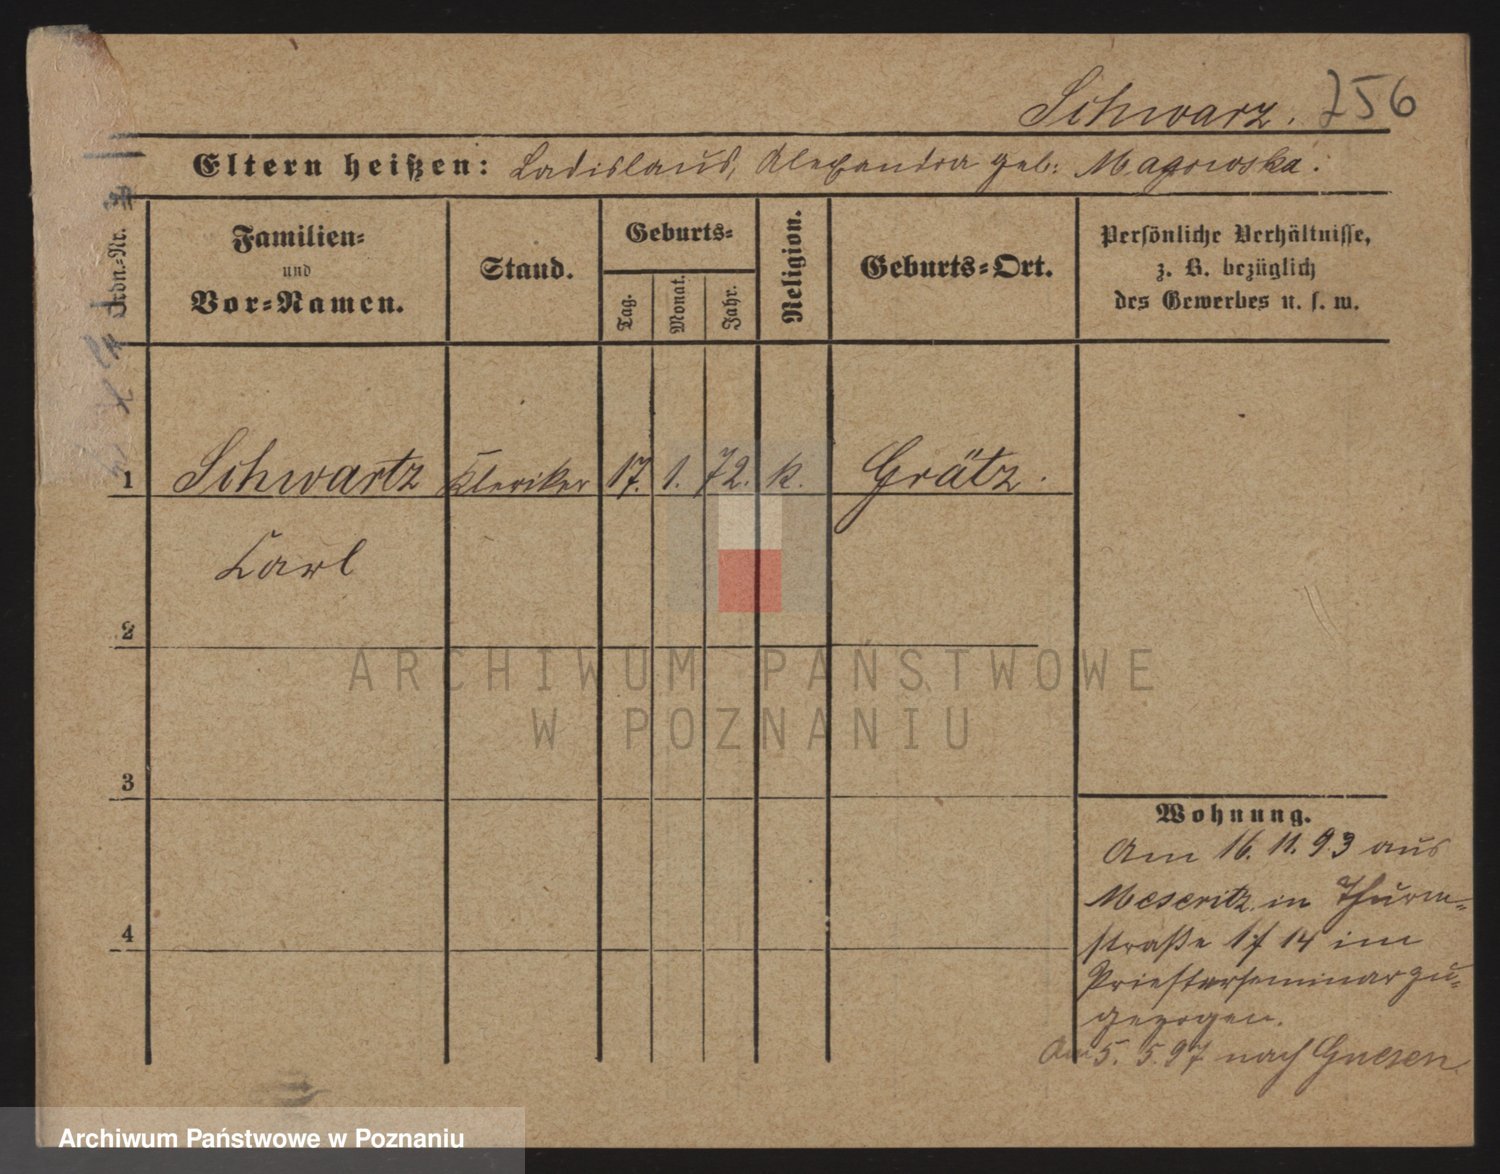 Schwarz. 756
Eltern heißen: Ladislaus, Alexandra geb: Magowska.
Ordn.-Nr.
Familien-
und
Vor-Namen.
Stand.
Geburts-
Tag.
Monat.
Jahr.
Religion.
Geburts-Ort.
Persönliche Verhältnisse,
z. B. bezüglich
des Gewerbes u. s. w.
1 Schwartz Kleriker 17. 1. 72. k. Grätz.
Carl
2
3
4
Wohnung.
Am 16. 11. 93 aus
Meseritz in Thurm-
straße 14 im
Priesterseminar zu-
gezogen.
Am 5. 5. 97 nach Gnesen
ARCHIWUM PAŃSTWOWE
W POZNANIU
Archiwum Państwowe w Poznaniu